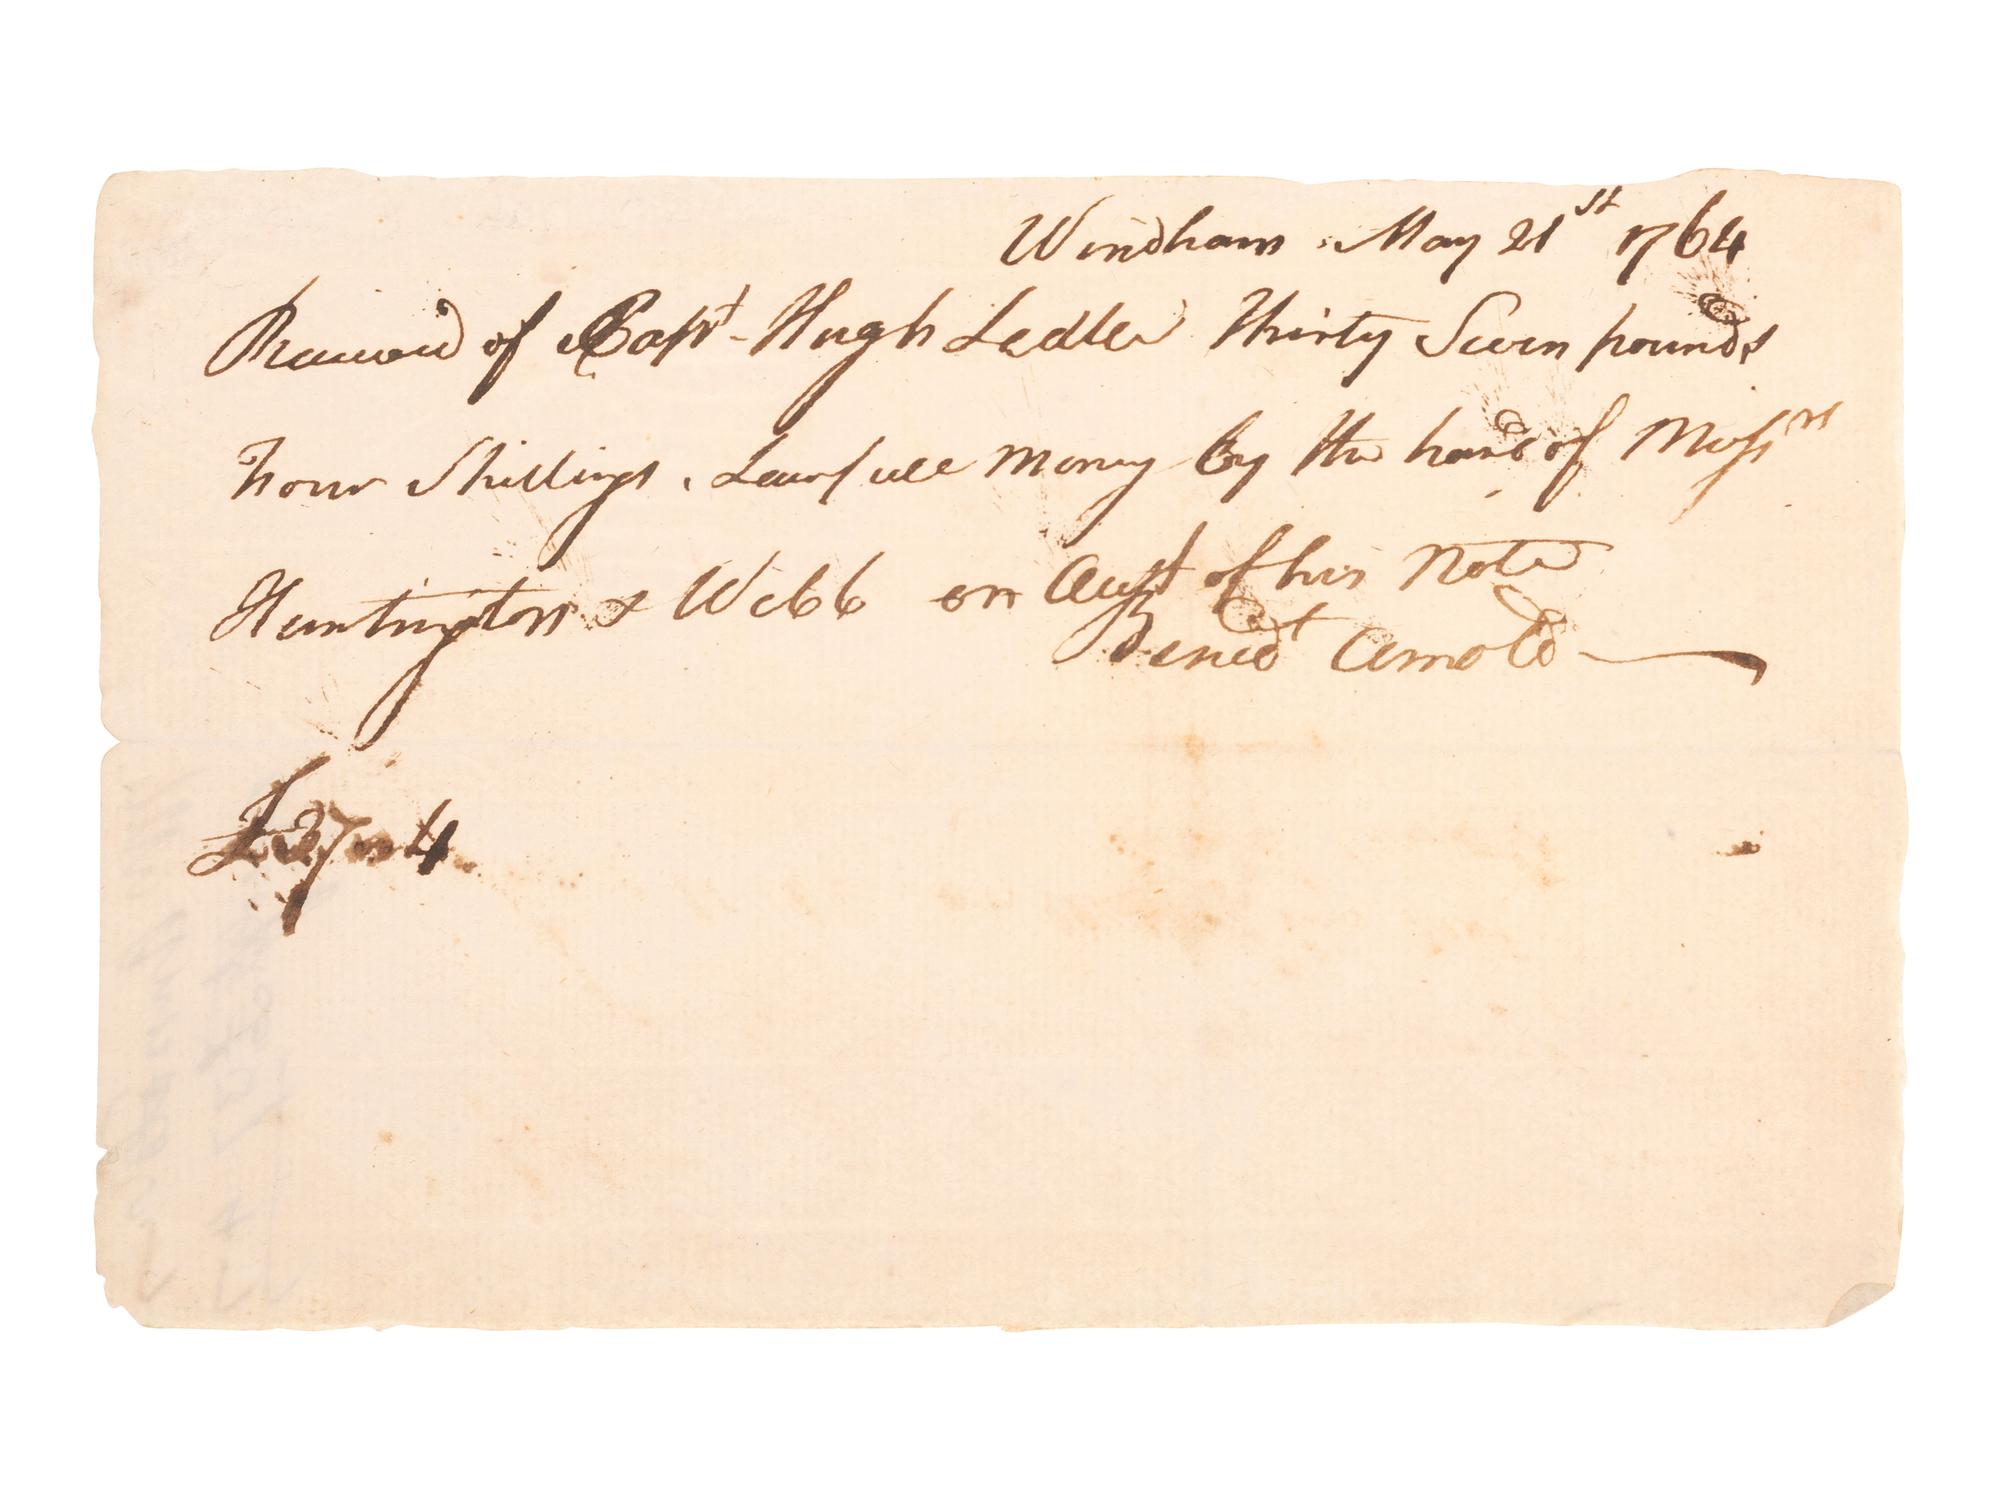 Windham May 21st 1764
Receivd of Capt Hugh Ledlie Thirty Seven pounds
four Shillings, Lawfull Money by the hand of Messrs
Huntington & Webb on Acct of his Note
Bened't Arnold
£37 4